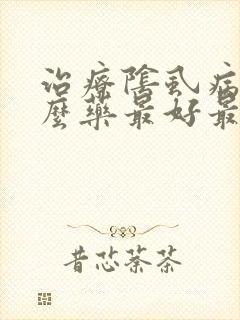 治療陰虱病
麼藥最好最
昔芯萘茶